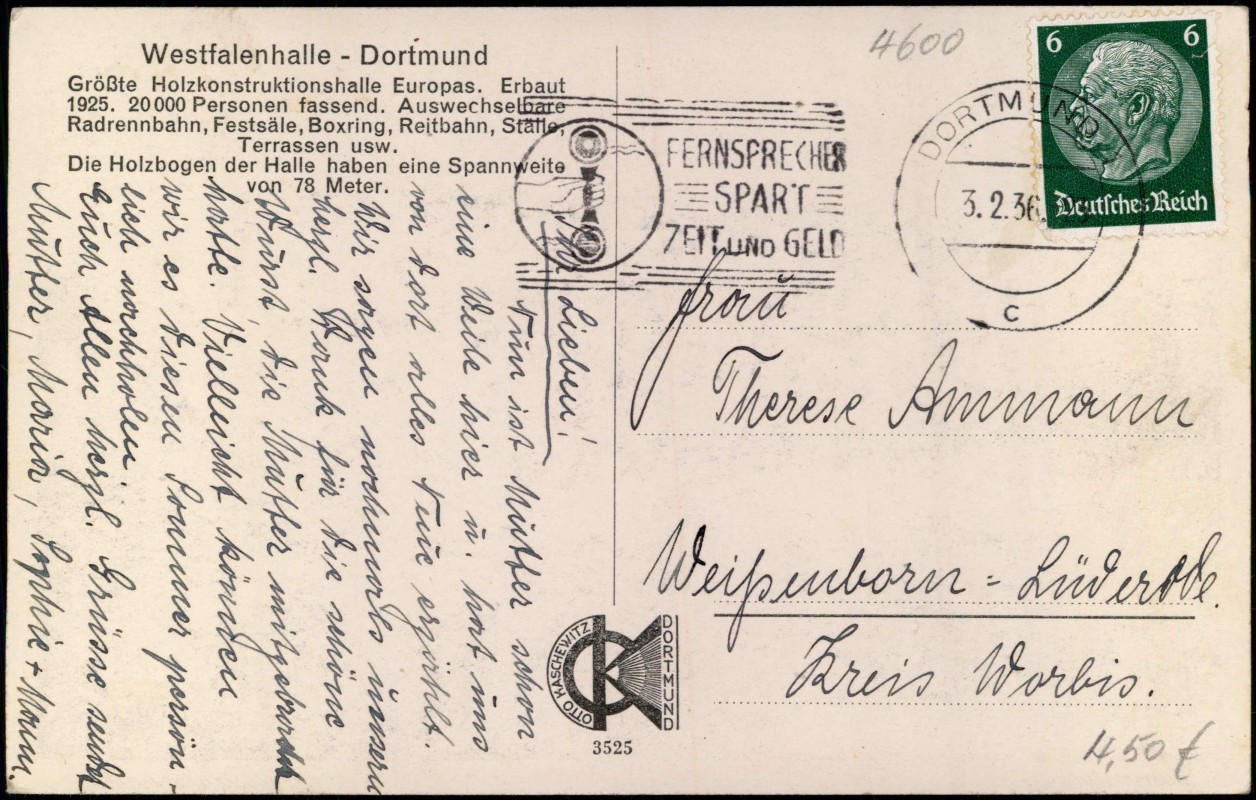 Westfalenhalle - Dortmund
Größte Holzkonstruktionshalle Europas. Erbaut
1925. 20 000 Personen fassend. Auswechselbare
Radrennbahn, Festsäle, Boxring, Reitbahn, Ställe,
Terrassen usw.
Die Holzbogen der Halle haben eine Spannweite
von 78 Meter.
4600
6 6
Deutsches Reich
DORTMUND
3.2.36.
c
FERNSPRECHER
SPART
ZEIT UND GELD
Lieben!
Nun ist Mutter schon
eine Weile hier u. hat uns
von dort alles Neue erzählt.
Wir sagen nochmals unsern
herzl. Dank für die schöne
Wurst, die Mutter mitgebracht
hatte. Vielleicht können
wir es diesen Sommer persön-
lich nachholen.
Euch Allen herzl. Grüsse sendet
Mutter, Maria, Sophie +
Frau
Therese Ammann
Weißenborn = Lüderode.
Kreis Worbis.
OTTO KASCHEWITZ
DORTMUND
3525
4,50 €